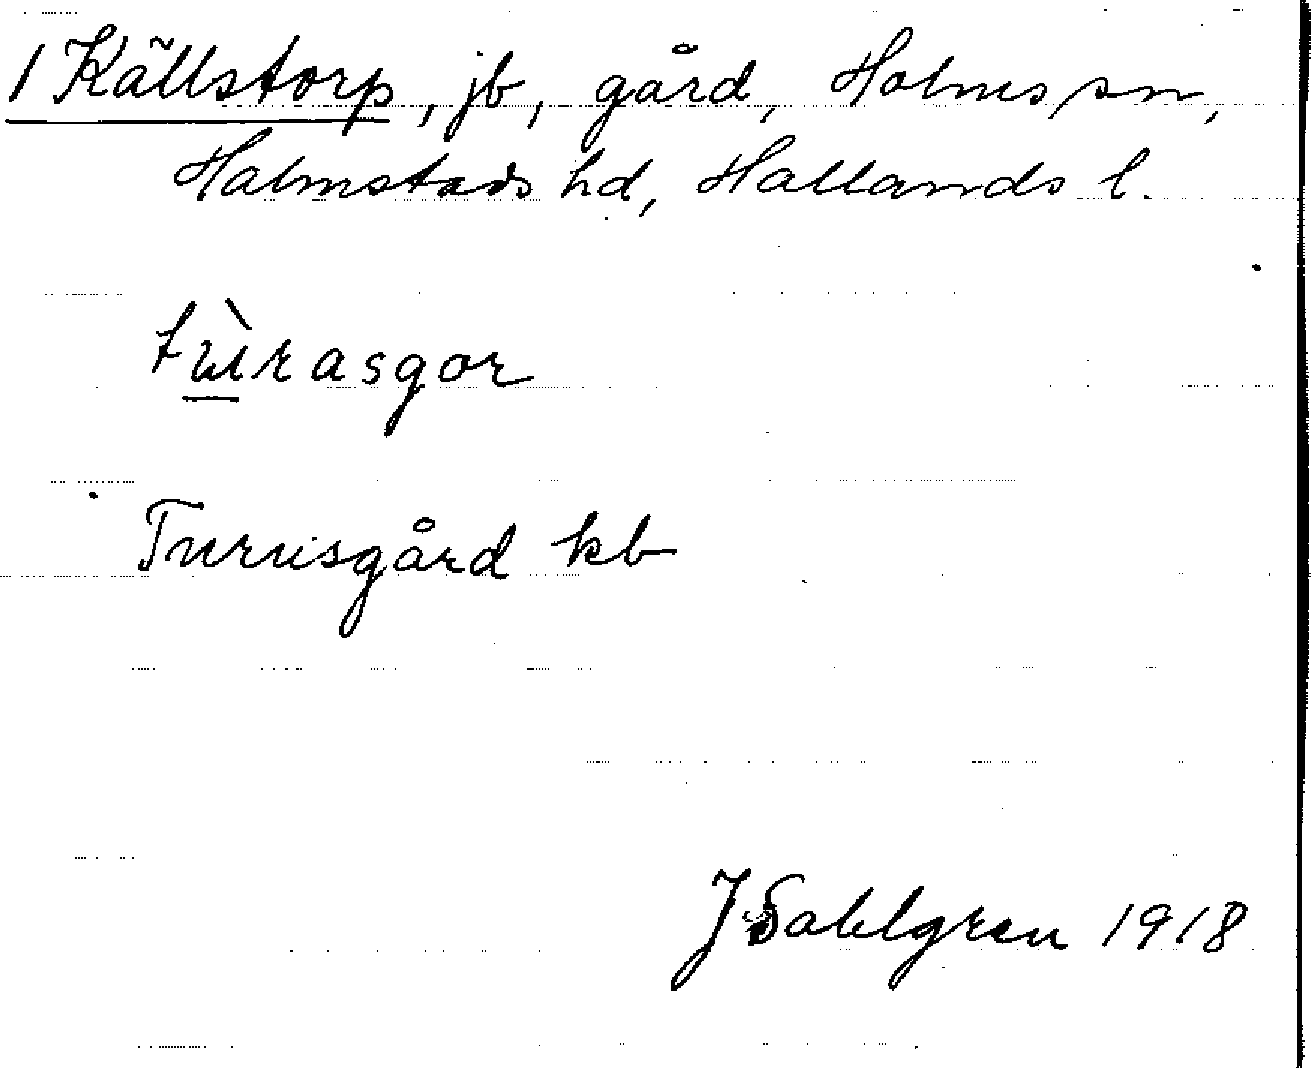 1 Källstorp, jb, gård, Holms sn,
Halmstads hd, Hallands l.
Turisgård kb
J Sahlgren 1918